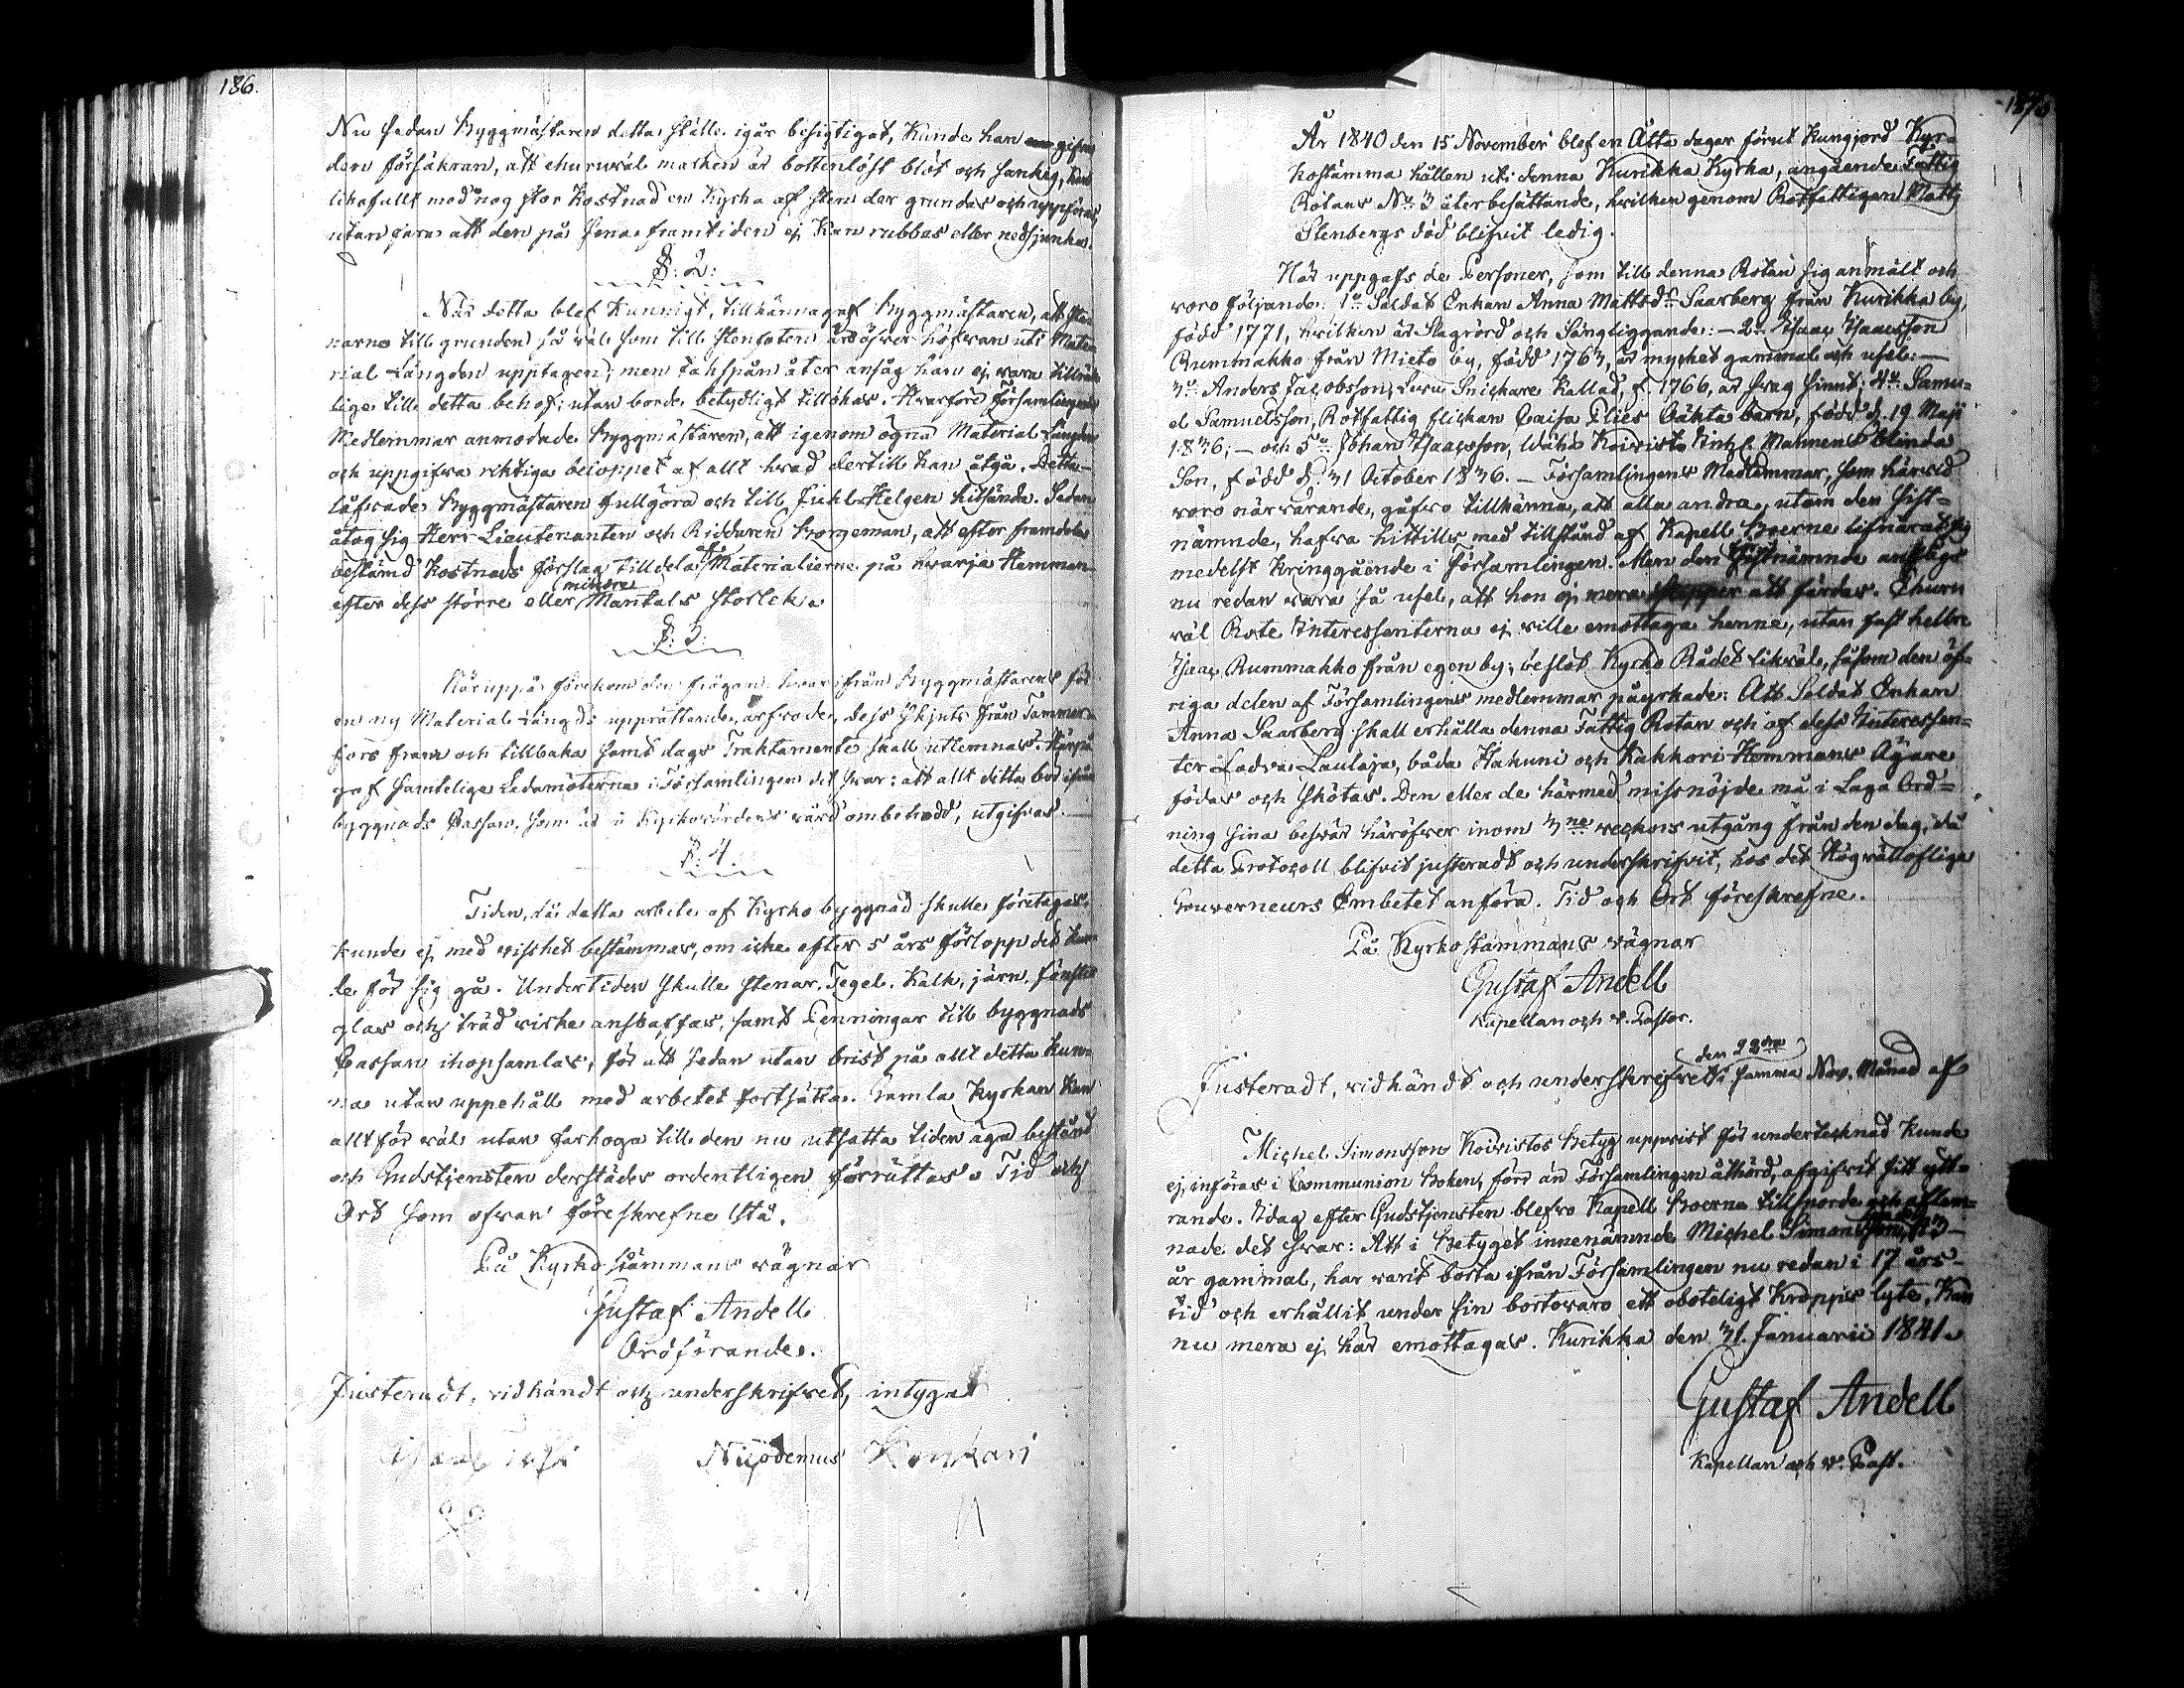 186.
Nu sedan Byggmästaren detta ställe igår besigtigat, kunde han gifva
den försäkran, att ehuruväl marken är bottenlöst blöt och sankig, kan
likafullt med nog stor kostnad en kyrka af sten der grundas och uppföras,
utan fara att den på sena framtiden ej kan rubbas eller nedsjunka.
§: 2:
När detta blef kunnigt, tillkännagaf Byggmästaren, att ste-
narne till grunden så väl som till stenfoten är öfver höfvan uti Mate-
rial Längden upptagen; men takspån åter ansåg han ej vara tillräk-
lige till detta behof; utan borde betydligt tillökas. Hvarföre Församlingens
Medlemmar anmodade Byggmästaren, att igenom ögna Material Längden
och uppgifva riktiga beloppet af allt hvad dertill kan åtgå. Detta
låfvade Byggmästaren fullgöra och till Juhl Helgen hitsända. Sedan
åtog sig Herr Lieutenanten och Riddaren Borgeman, att efter framdeles
bestämd kostnads förslag tilldela Materialierne på hvarje Hemman
efter dess större eller mindre Mantals storlek.
§: 3:
Häruppå förekom den frågan, hvarifrån Byggmästarens för
en ny Material Längds upprättande, arfvode, dess skjuts från Tammer-
fors fram och tillbaka samt dags Traktamente skall utlemnas. Härpå
gaf samtelige Ledamöterna i Församlingen det svar: att allt detta bör ifrån
byggnads Cassan, som är i Kyrkovärdens vård ombetrodd, utgifvas.
§: 4.
Tiden, då detta arbete af Kyrko byggnad skulle företagas,
kunde ej med visshet bestämmas, om icke efter 5 års förlopp det kun-
de för sig gå. Undertiden skulle stenar, Tegel, Kalk, järn, fönster
glas och träd virke anskaffas, samt Penningar till byggnads
Cassan ihopsamlas, för att sedan utan brist på allt detta kun-
na utan uppehåll med arbetet fortsätta. Gamla kyrkan kan
allt för väl utan farhoga till den nu utsatta tiden äga bestånd
och Gudstjensten derstädes ordentligen förrättas. Tid och
Ort som ofvan föreskrefne stå.
På Kyrko stämmans vägnar
Gustaf Andell
Ordförande.
Justeradt, vidhändt och underskrifvet, intygar
Nicodemus Konkari
187
År 1840 den 15 November blef en Åtta dagar förut kungjord Kyr-
kostämma hållen uti denna Kurikka Kyrka, angående Fattig
Rotans No: 3 återbesättande, hvilken genom Rotfattigen Matts
Stenbergs död blifvit ledig.
Här uppgafs de Personer, som till denna Rotan sig anmält och
voro följande: 1o Soldat Enkan Anna Mattsdr Saarberg från Kurikka by,
född 1771, hvilken är Slagrörd och Sängliggande: - 2o Isaac Isaacsson
Rummakko från Mieto by, född 1763, är mycket gammal och usel: -
3o Anders Jacobsson, Snickare kallad, f. 1766, är svag sinnt; 4o Samu-
el Samuelsson, Rotfattig flickan Caisa Elies oäkta barn, född d. 19 Maji
1836; - och 5o Johan Isaacsson, Wähä Koivisto Mannens blinda
Son, född d. 31 October 1836. - Församlingens Medlemmar, som härvid
voro närvarande, gåfvo tillkänna, att alla andra, utom den sist-
nämnde, hafva hittills med tillstånd af Kapell Boerne lifnärat sig
medelst kringgående i församlingen. Men den förstnämnde ansågs
nu redan vara så usel, att hon ej mera att färdas. Ehuru
väl Rote Interessenterna ej ville emottaga henne, utan fast hellre
Isaac Rummakko från egen by; beslöt Kyrko Rådet likväl, såsom den öf-
riga delen af Församlingens medlemmar påyrkade: Att Soldat Enkan
Anna Saarberg skall erhålla denna Fattig Rotan och af dess Interessen-
ter Ladva Laulaja, båda Hakuni och Kakkori Hemmans Ägare
födas och skötas. Den eller de härmed missnöjde må i Laga Ord-
ning sina besvär häröfver inom 3ne veckors utgång från den dag, då
detta Protocoll blifvit justeradt och underskrifvit, hos det Högvällofliga
Gouverneurs Embetet anföra. Tid och Ort föreskrefne.
På Kyrko stämmans vägnar
Gustaf Andell
Kapellan och v. Pastor.
Justeradt, vidhändt och underskrifvet den 22dra i samma Nov. Månad af
Michel Simonsson Koivistos betyg uppvist för undertecknad kunde
ej införas i Communion Boken, förr än Församlingen åthörd, afgifvit sitt ytt-
rande. Idag efter Gudstjensten blefvo Kapell Boerne tillsporde och aflem-
nade det svar: Att i betyget innenämnde Michel Simonsson,
år gammal, har varit borta ifrån Församlingen nu redan i 17 års
tid och erhållit under sin bortovaro ett oboteligt kropps lyte, kan
nu mera ej här emottagas. Kurikka den 31. Januarii 1841.
Gustaf Andell
Kapellan och v. Past.